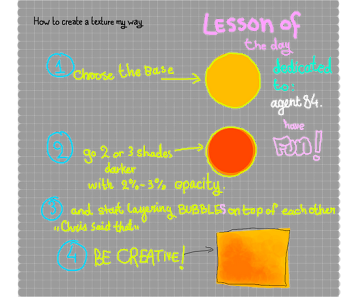 How to create a texture my way
Lesson of
the day
dedicated
to:
agent 84.
have
Fun!
1 Choose the Base
2 go 2 or 3 shades
darker
with 2%-3% opacity.
3 and start layering BUBBLES on top of each other
"Chris said that"
4 BE CREATIVE!